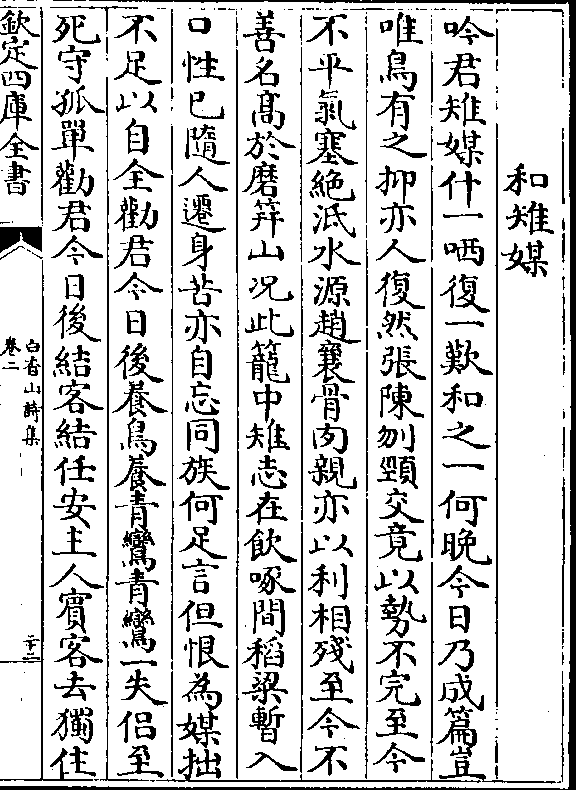 和雉媒
吟君雉媒什一哂復一歎和之一何晚今日乃成篇豈
唯鳥有之抑亦人復然張陳刎頸交竟以勢不完至今
不平氣塞絶泜水源趙襄骨肉親亦以利相殘至今不
善名髙於磨笄山况此籠中雉志在飲啄間稻粱暫入
口性已隨人遷身苦亦自忘同族何足言但恨為媒拙
不足以自全勸君今日後養鳥養青鸞青鸞一失侣至
死守孤單勸君今日後結客結任安主人賓客去獨住
欽定四庫全書
白香山詩集
卷二